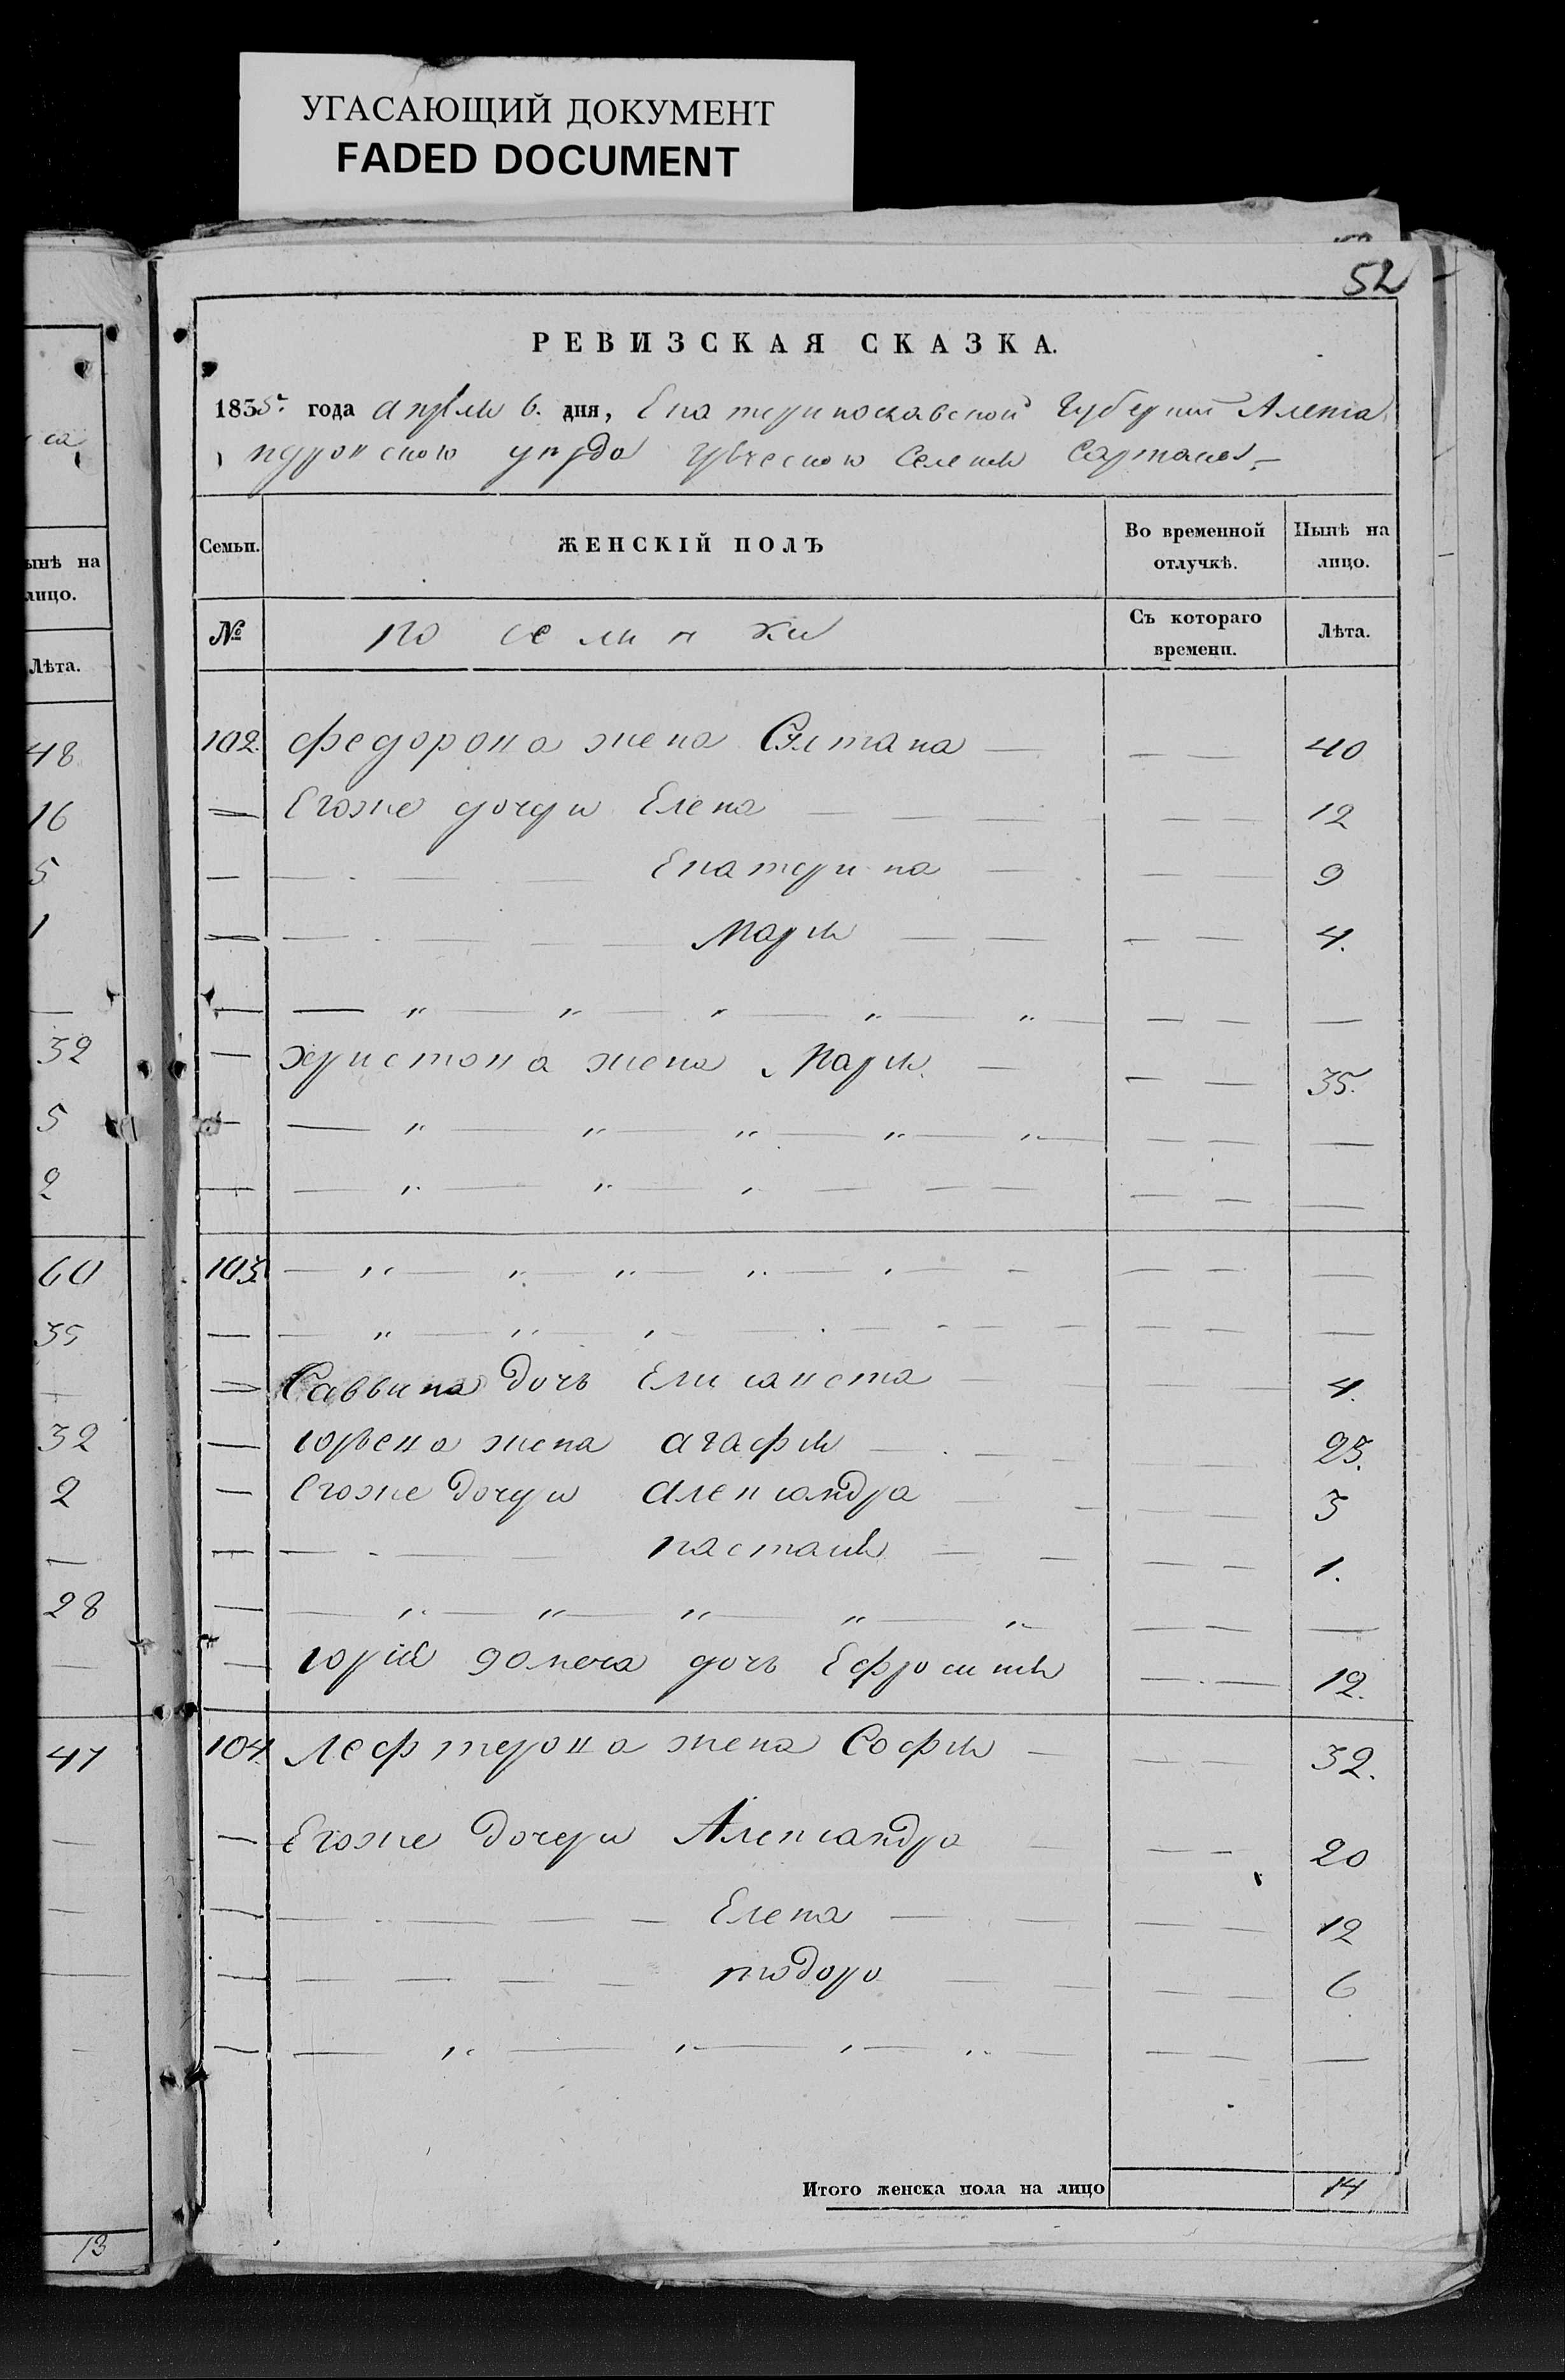 УГАСАЮЩИЙ ДОКУМЕНТ
FADED DOCUMENT
52
РЕВИЗСКАЯ СКАЗКА.
1835. года апреля 6. дня, Екатеринославской Губернии Алекса
ндровского уезда греческого Селения Сартана
са
Семьи.
ЖЕНСКІЙ ПОЛЪ
Во временной отлучкѣ.
Нынѣ на лицо.
ынѣ на
лицо.
№
Съ котораго времени.
Лѣта.
Лѣта.
48
102. федорова жена Султана 40
16
Егоже дочери Елена 12
5
Екатерина 9
1
Мария 4.
32
Христова жена Мария 35.
5
2
60
103.
35
Саввина дочь Елисавета 4.
32
юрьева жена агафия 23.
2
Егоже дочери александра 3
настасия 1.
28
юрий дочь Ефросиния 12.
47
104. Лефтерова жена София 32.
Егоже дочери Александра 20
Елена 12
тодора 6
Итого женска пола на лицо 14
13